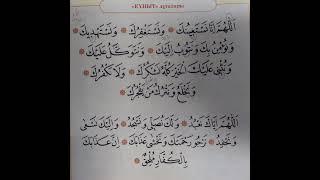 «КУНЫТ» дұғасы
اَللّٰهُمَّ اِنَّا نَسْتَعِينُكَ ۞ وَنَسْتَغْفِرُكَ ۞ وَنَسْتَهْدِيكَ
۞ وَنُؤْمِنُ بِكَ وَنَتُوبُ اِلَيْكَ ۞ وَنَتَوَكَّلُ عَلَيْكَ
۞ وَنُثْنِى عَلَيْكَ الْخَيْرَ كُلَّهُ نَشْكُرُكَ ۞ وَلَا نَكْفُرُكَ
۞ وَنَخْلَعُ وَنَتْرُكُ مَنْ يَفْجُرُكَ
اَللّٰهُمَّ اِيَّاكَ نَعْبُدُ ۞ وَلَكَ نُصَلِّى وَنَسْجُدُ ۞ وَاِلَيْكَ نَسْعٰى
وَنَحْفِدُ ۞ نَرْجُو رَحْمَتَكَ وَنَخْشٰى عَذَابَكَ ۞ اِنَّ عَذَابَكَ
بِالْكُفَّارِ مُلْحِقٌ ۞